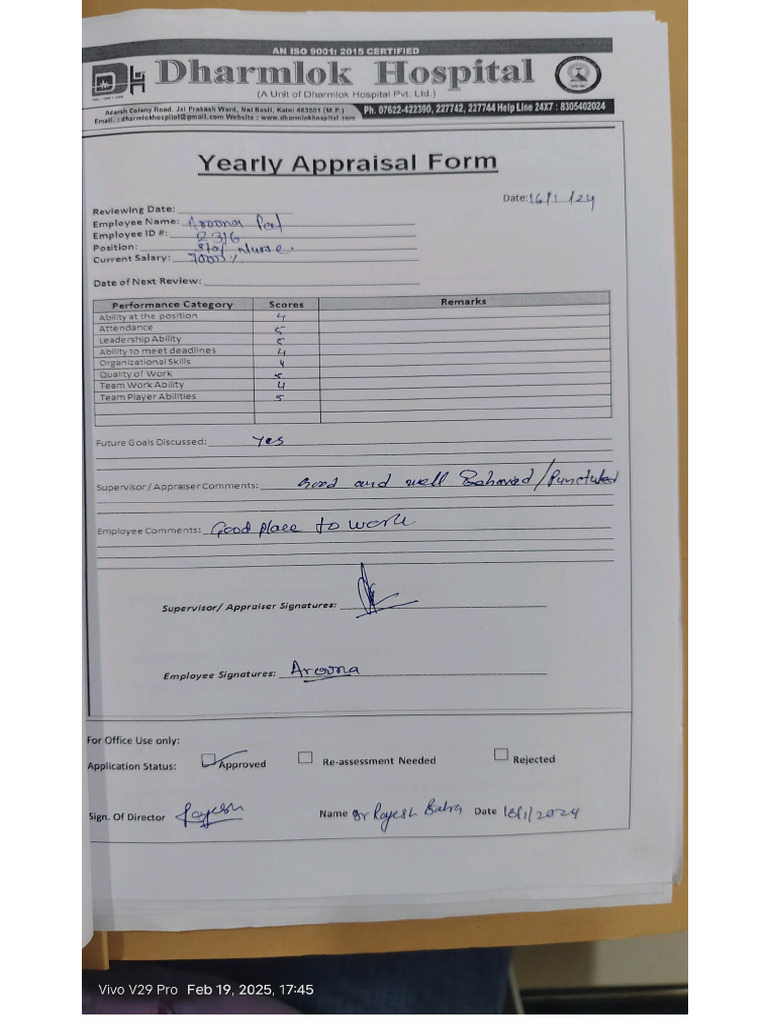 AN ISO 9001: 2015 CERTIFIED
Dharmlok Hospital
(A Unit of Dharmlok Hospital Pvt. Ltd.)
Adarsh Colony Road, Jai Prakash Ward, Nai Basti, Katni 483501 (M.P.)
Email. : dharmlokhospital@gmail.com Website : www.dharmlokhospital.com
Ph. 07622-422390, 227742, 227744 Help Line 24X7 : 8305402024
Yearly Appraisal Form
Date: 16/1/24
Reviewing Date:
Employee Name: Aroona
Employee ID #: 2316
Position: Nurse.
Current Salary:
Date of Next Review:
Performance Category Scores Remarks
Ability at the position 4
Attendance 5
Leadership Ability 5
Ability to meet deadlines 4
Organizational Skills 4
Quality of Work 5
Team Work Ability 4
Team Player Abilities 5
Future Goals Discussed: Yes
Supervisor / Appraiser Comments: Good and well Behaved/
Employee Comments: Good place to work
Supervisor/ Appraiser Signatures:
Employee Signatures: Aroona
For Office Use only:
Application Status: Approved Re-assessment Needed Rejected
Sign. Of Director Rajesh Name Dr Rajesh Batra Date 16/1/2024
Vivo V29 Pro Feb 19, 2025, 17:45